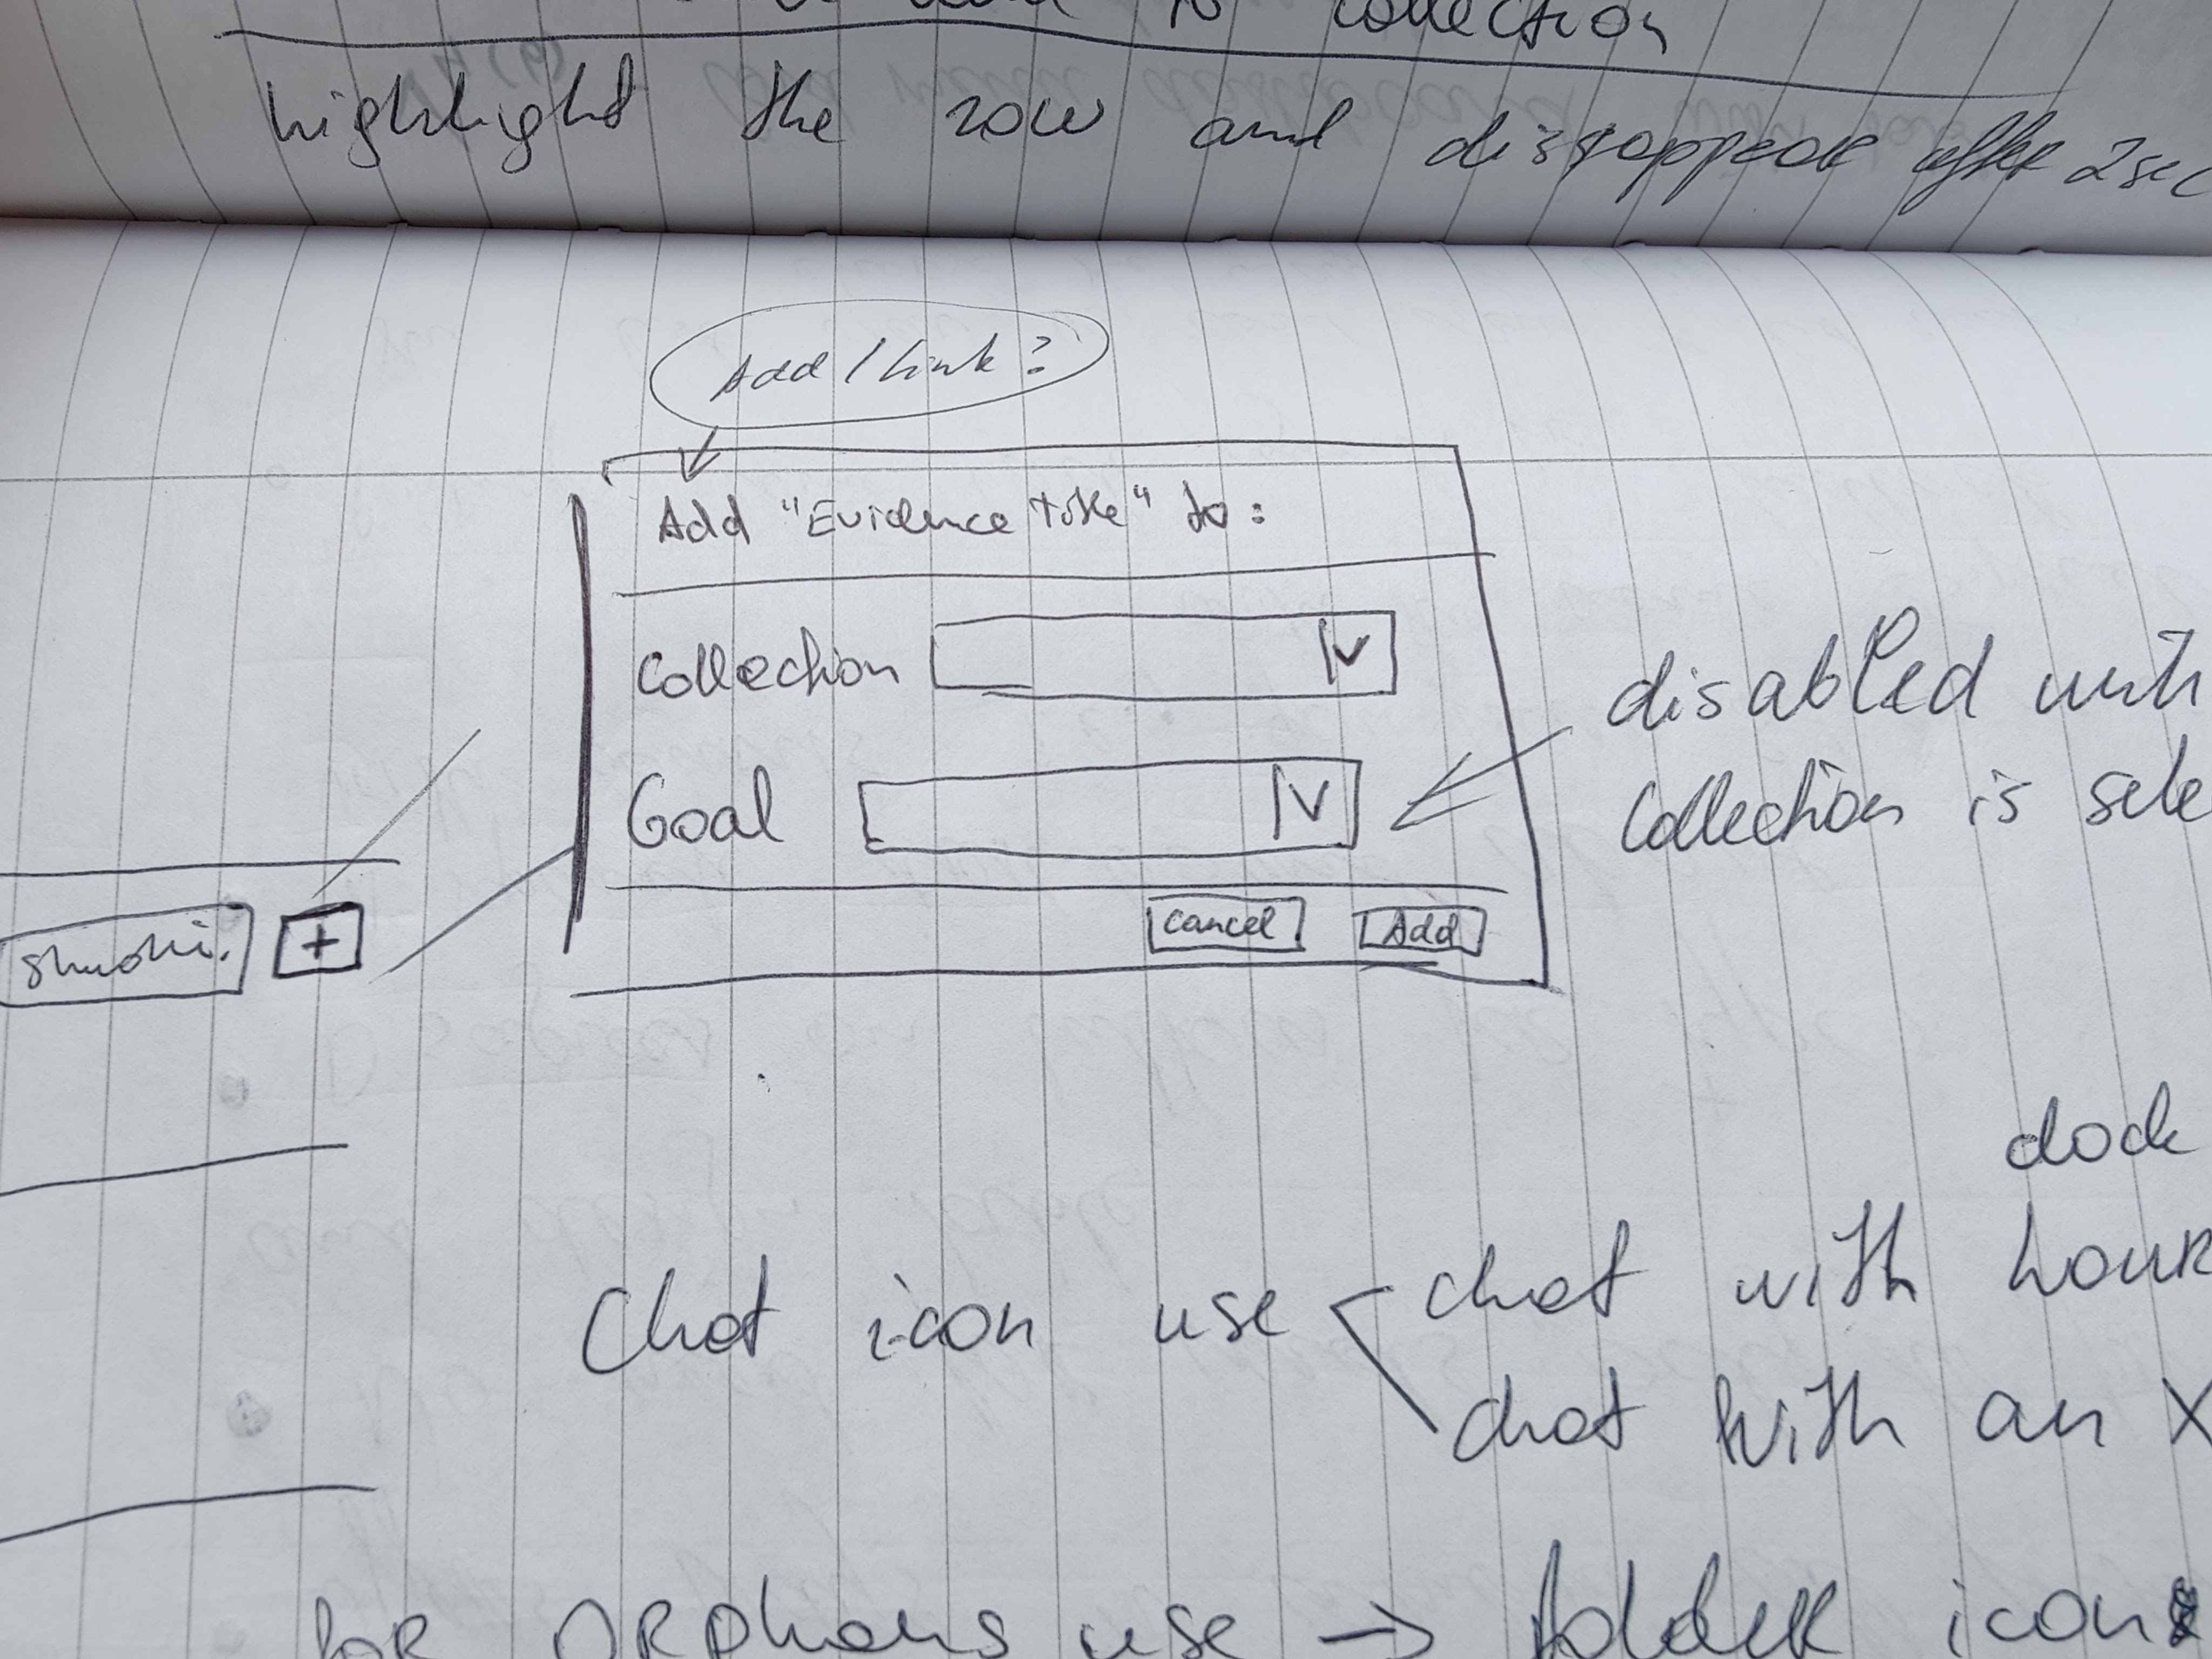 to collection
highlight the row and dissappear after 2sec
Add / Link?
Add "Evidence Title" to:
Collection
Goal
Cancel Add
disabled
Collection is sele
+
Chat icon use
chat with
chat with an X
for ORphans use → folder icon